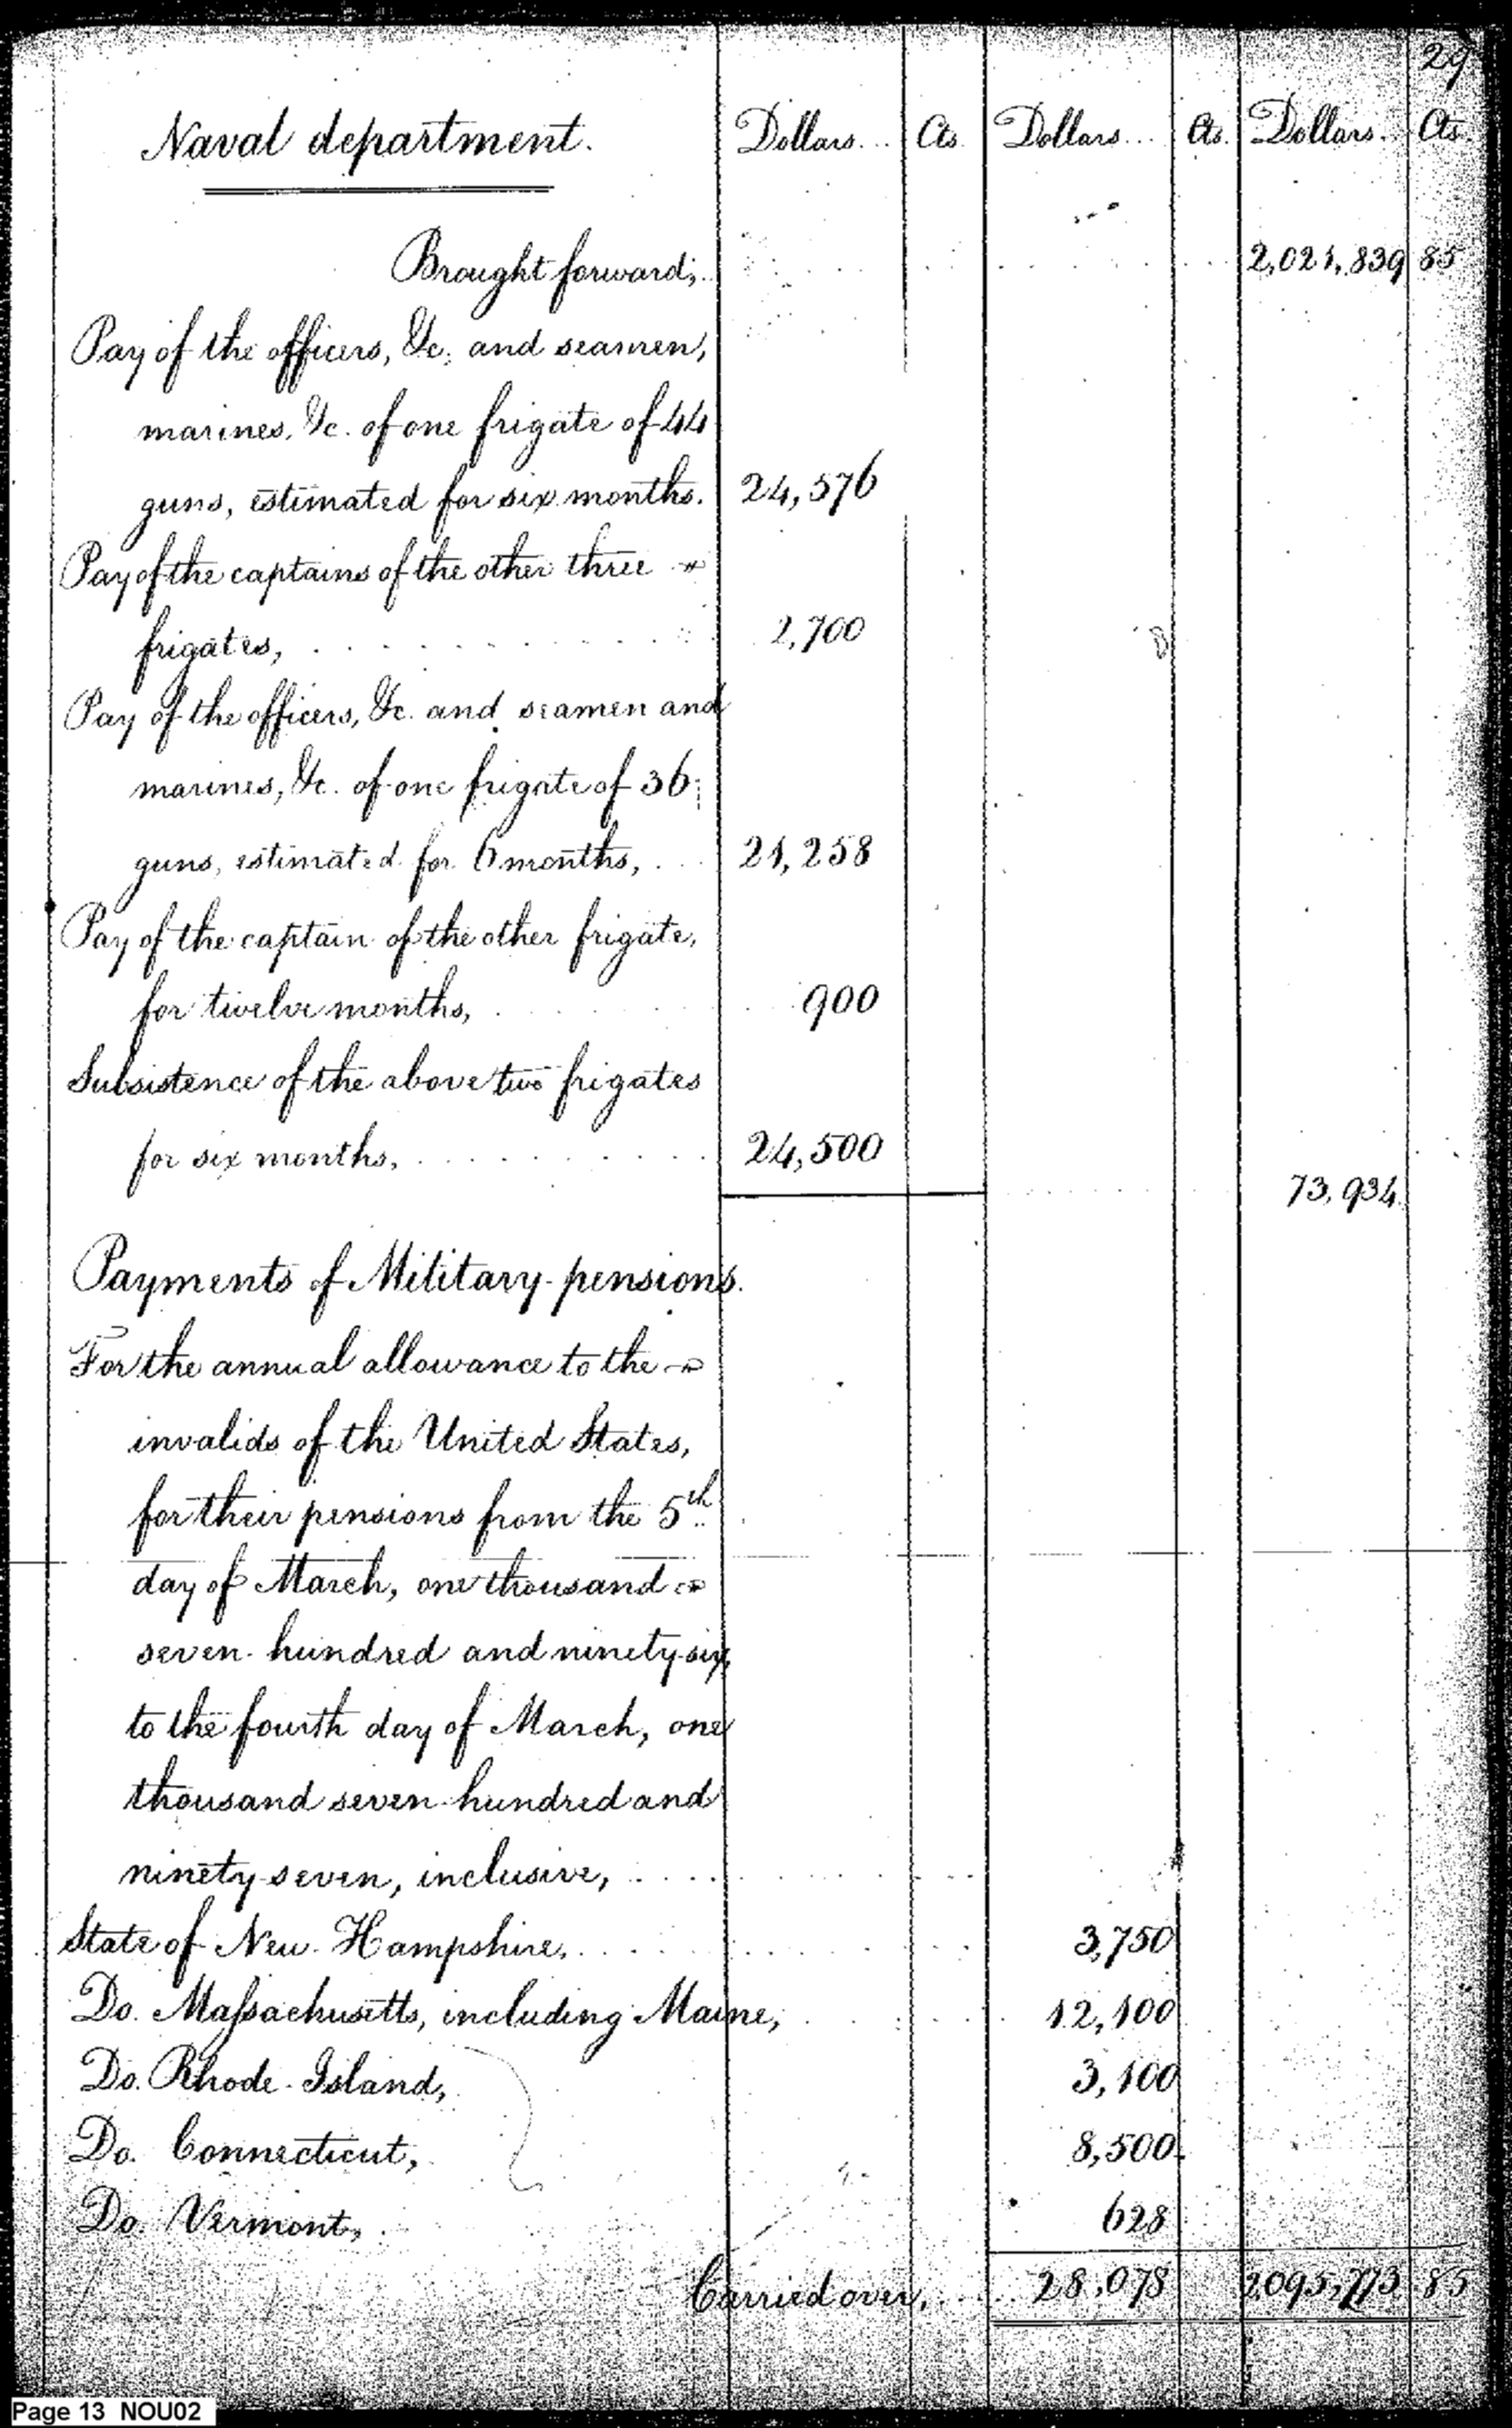 29
Naval department. Dollars... Cts. Dollars... Cts. Dollars... Cts.
Brought forward, 2,021,839 85
Pay of the officers, &c. and seamen,
marines, &c. of one frigate of 44
guns, estimated for six months. 24,576
Pay of the captains of the other three
frigates, 2,700
Pay of the officers, &c. and seamen and
marines, &c. of one frigate of 36
guns, estimated for 6 months, 21,258
Pay of the captain of the other frigate,
for twelve months, 900
Subsistence of the above two frigates
for six months, 24,500
73,934
Payments of Military pensions.
For the annual allowance to the
invalids of the United States,
for their pensions from the 5th
day of March, one thousand
seven hundred and ninety-six,
to the fourth day of March, one
thousand seven hundred and
ninety-seven, inclusive,
State of New Hampshire, 3,750
Do. Massachusetts, including Maine, 12,100
Do. Rhode Island, 3,100
Do. Connecticut, 8,500
Do. Vermont, 628
Carried over, 28,078 2,095,773 85
Page 13 NOU02